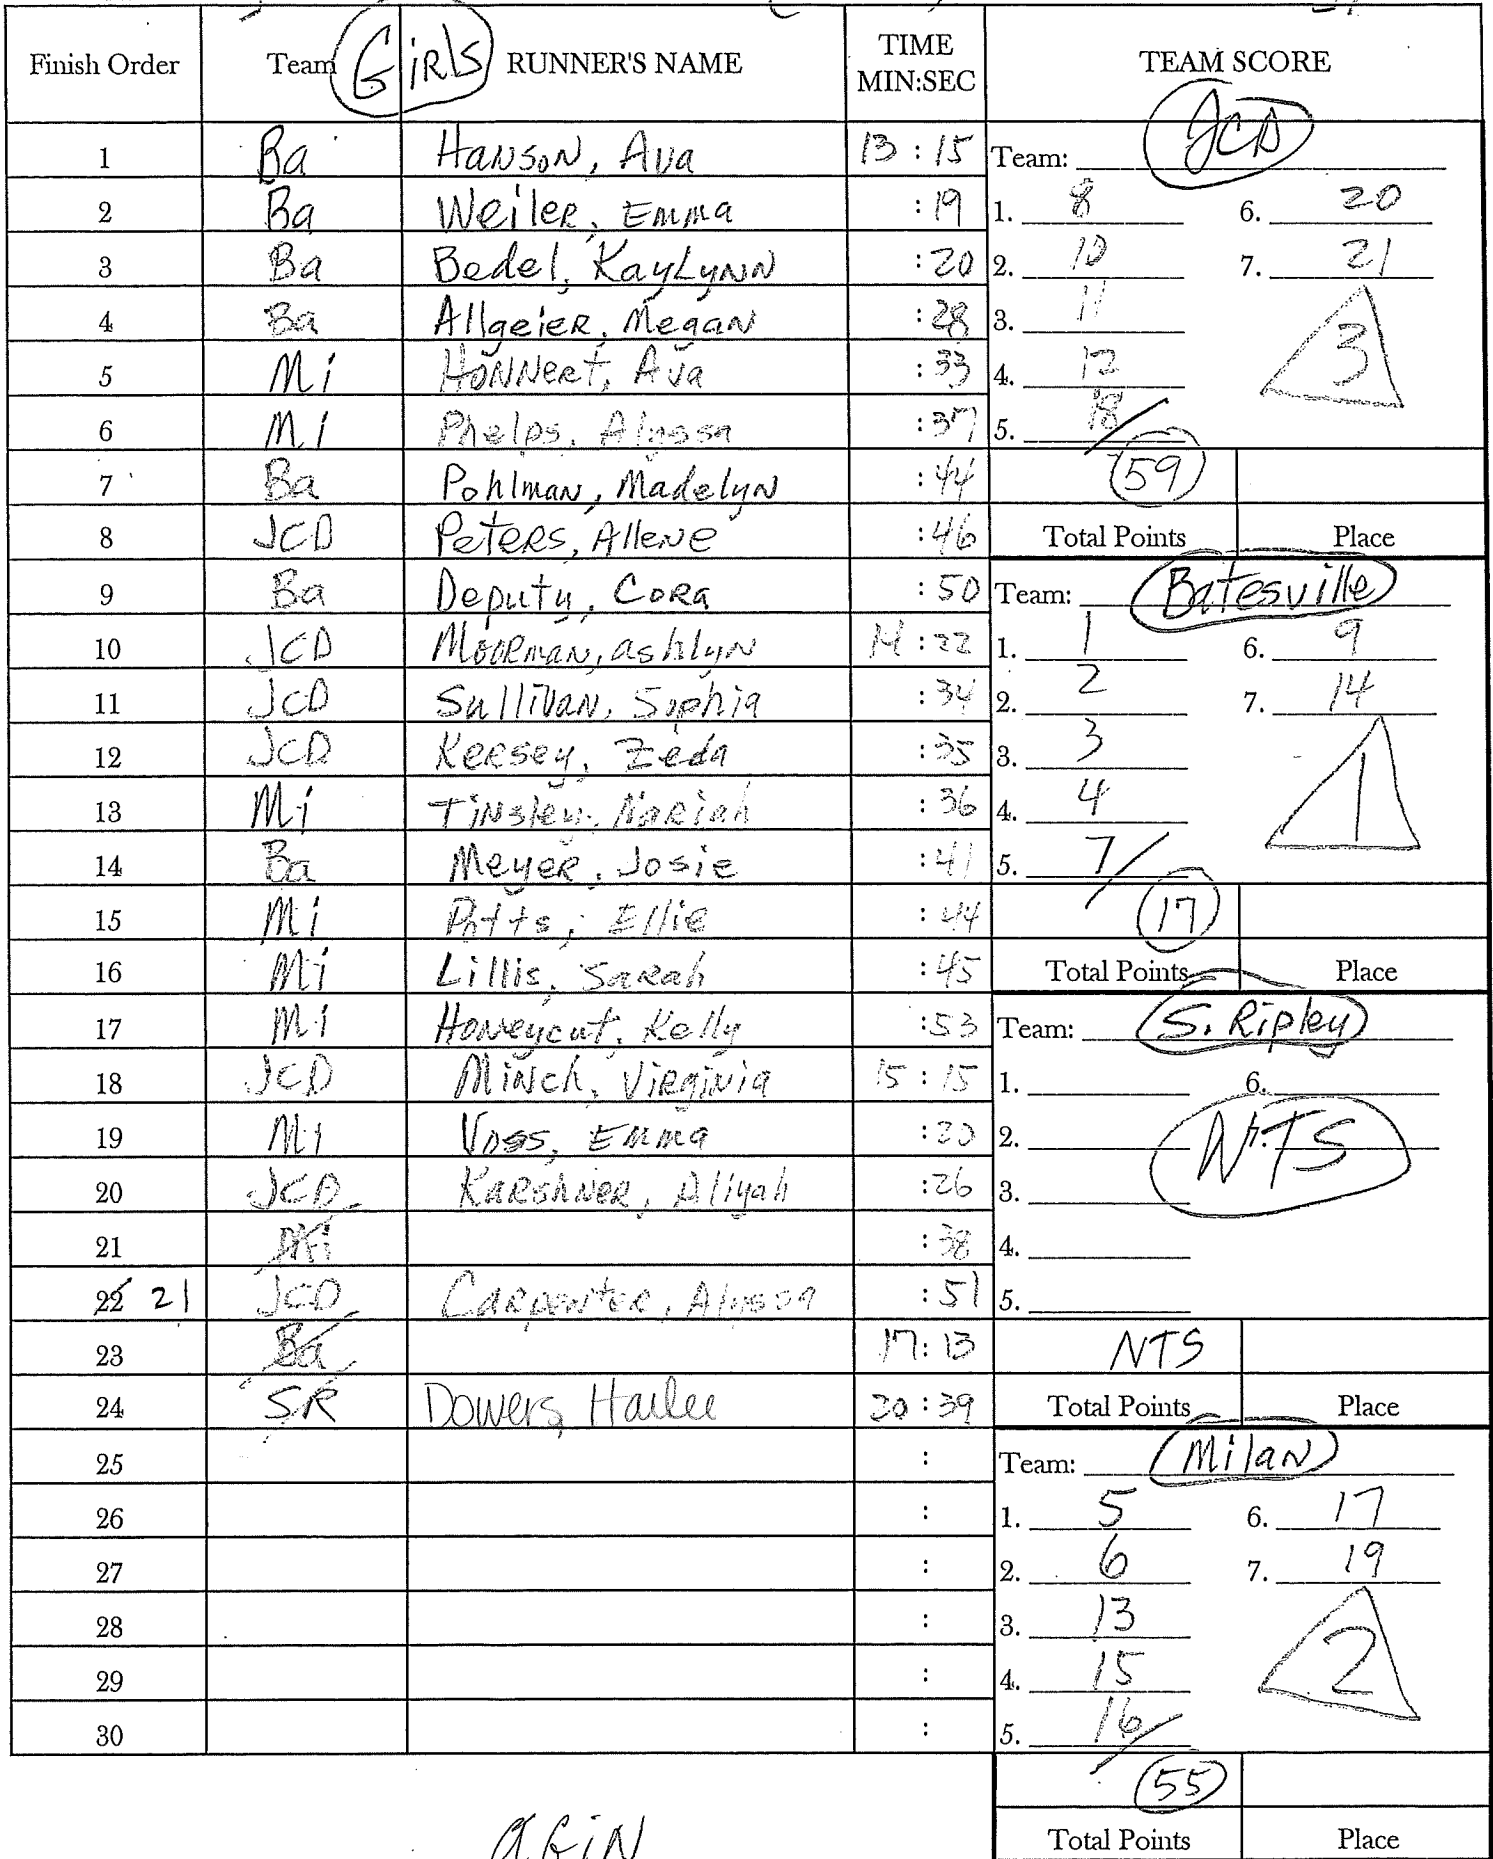 Finish Order Team Girls RUNNER'S NAME TIME MIN:SEC TEAM SCORE
1 Ba Hanson, Ava 13:15
2 Ba Weiler, Emma :19
3 Ba Bedel, KayLynn :20
4 Ba Allgeier, Megan :28
5 Mi Honnert, Ava :33
6 Mi Phelps, Alyssa :37
7 Ba Pohlman, Madelyn :44
8 JCD Peters, Allene :46
9 Ba Deputy, Cora :50
10 JCD Moorman, ashlyn 14:22
11 JCD Sullivan, Sophia :34
12 JCD Kersey, Zeda :35
13 Mi Tinsley, Mariah :36
14 Ba Meyer, Josie :41
15 Mi Potts, Ellie :44
16 Mi Lillis, Sarah :45
17 Mi Honeycut, Kelly :53
18 JCD Minch, Virginia 15:15
19 Mi Voss, Emma :20
20 JCD Karshner, Aliyah :26
21 Mi :38
22 21 JCD Carpenter, Alyssa :51
23 Ba 17:13
24 SR Dowers, Hailee 20:39
25 :
26 :
27 :
28 :
29 :
30 :
Team: JCD
1. 8 6. 20
2. 10 7. 21
3. 11
4. 12 3
5. 18
59
Total Points Place
Team: Batesville
1. 1 6. 9
2. 2 7. 14
3. 3
4. 4 1
5. 7
17
Total Points Place
Team: S. Ripley
1. 6.
2. NTS
3.
4.
5.
NTS
Total Points Place
Team: Milan
1. 5 6. 17
2. 6 7. 19
3. 13
4. 15 2
5. 16
55
Total Points Place